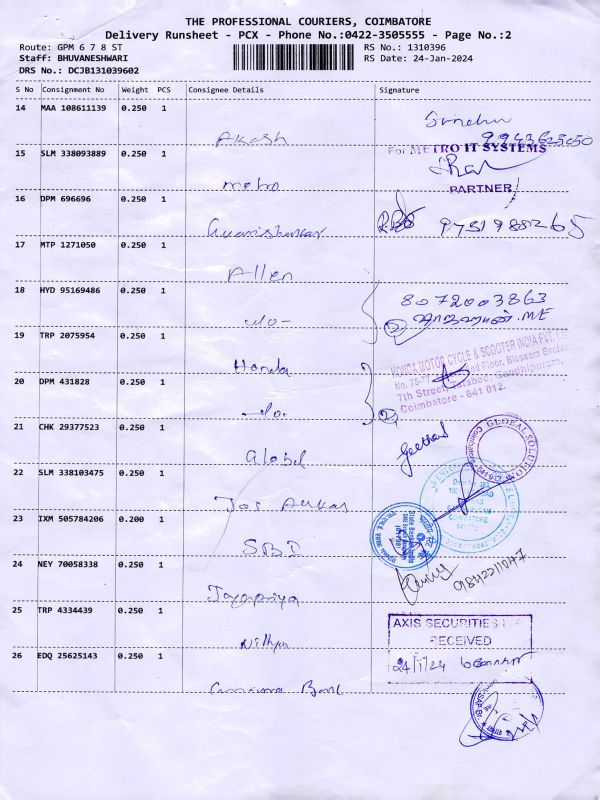 THE PROFESSIONAL COURIERS, COIMBATORE
Delivery Runsheet - PCX - Phone No.:0422-3505555 - Page No.:2
Route: GPM 6 7 8 ST
Staff: BHUVANESHWARI
DRS No.: DCJB131039602
RS No.: 1310396
RS Date: 24-Jan-2024
S No Consignment No Weight PCS Consignee Details Signature
14 MAA 108611139 0.250 1
Akash
9943625050
15 SLM 338093889 0.250 1
For METRO IT SYSTEMS
PARTNER
metro
16 DPM 696696 0.250 1
9751988265
17 MTP 1271050 0.250 1
Allen
18 HYD 95169486 0.250 1
8072003863
19 TRP 2075954 0.250 1
Honda
HONDA MOTOR CYCLE & SCOOTER INDIA PVT. LTD
7th Street, Gandhipuram,
Coimbatore - 641 012.
20 DPM 431828 0.250 1
21 CHK 29377523 0.250 1
Global
Geetha
GLOBAL SOLUTION
22 SLM 338103475 0.250 1
Jos Alukas
23 IXM 505784206 0.200 1
SBI
State Bank of India
24 NEY 70058338 0.250 1
Jayapriya
25 TRP 4334439 0.250 1
Nithya
AXIS SECURITIES
RECEIVED
24/1/24
26 EDQ 25625143 0.250 1
Bank